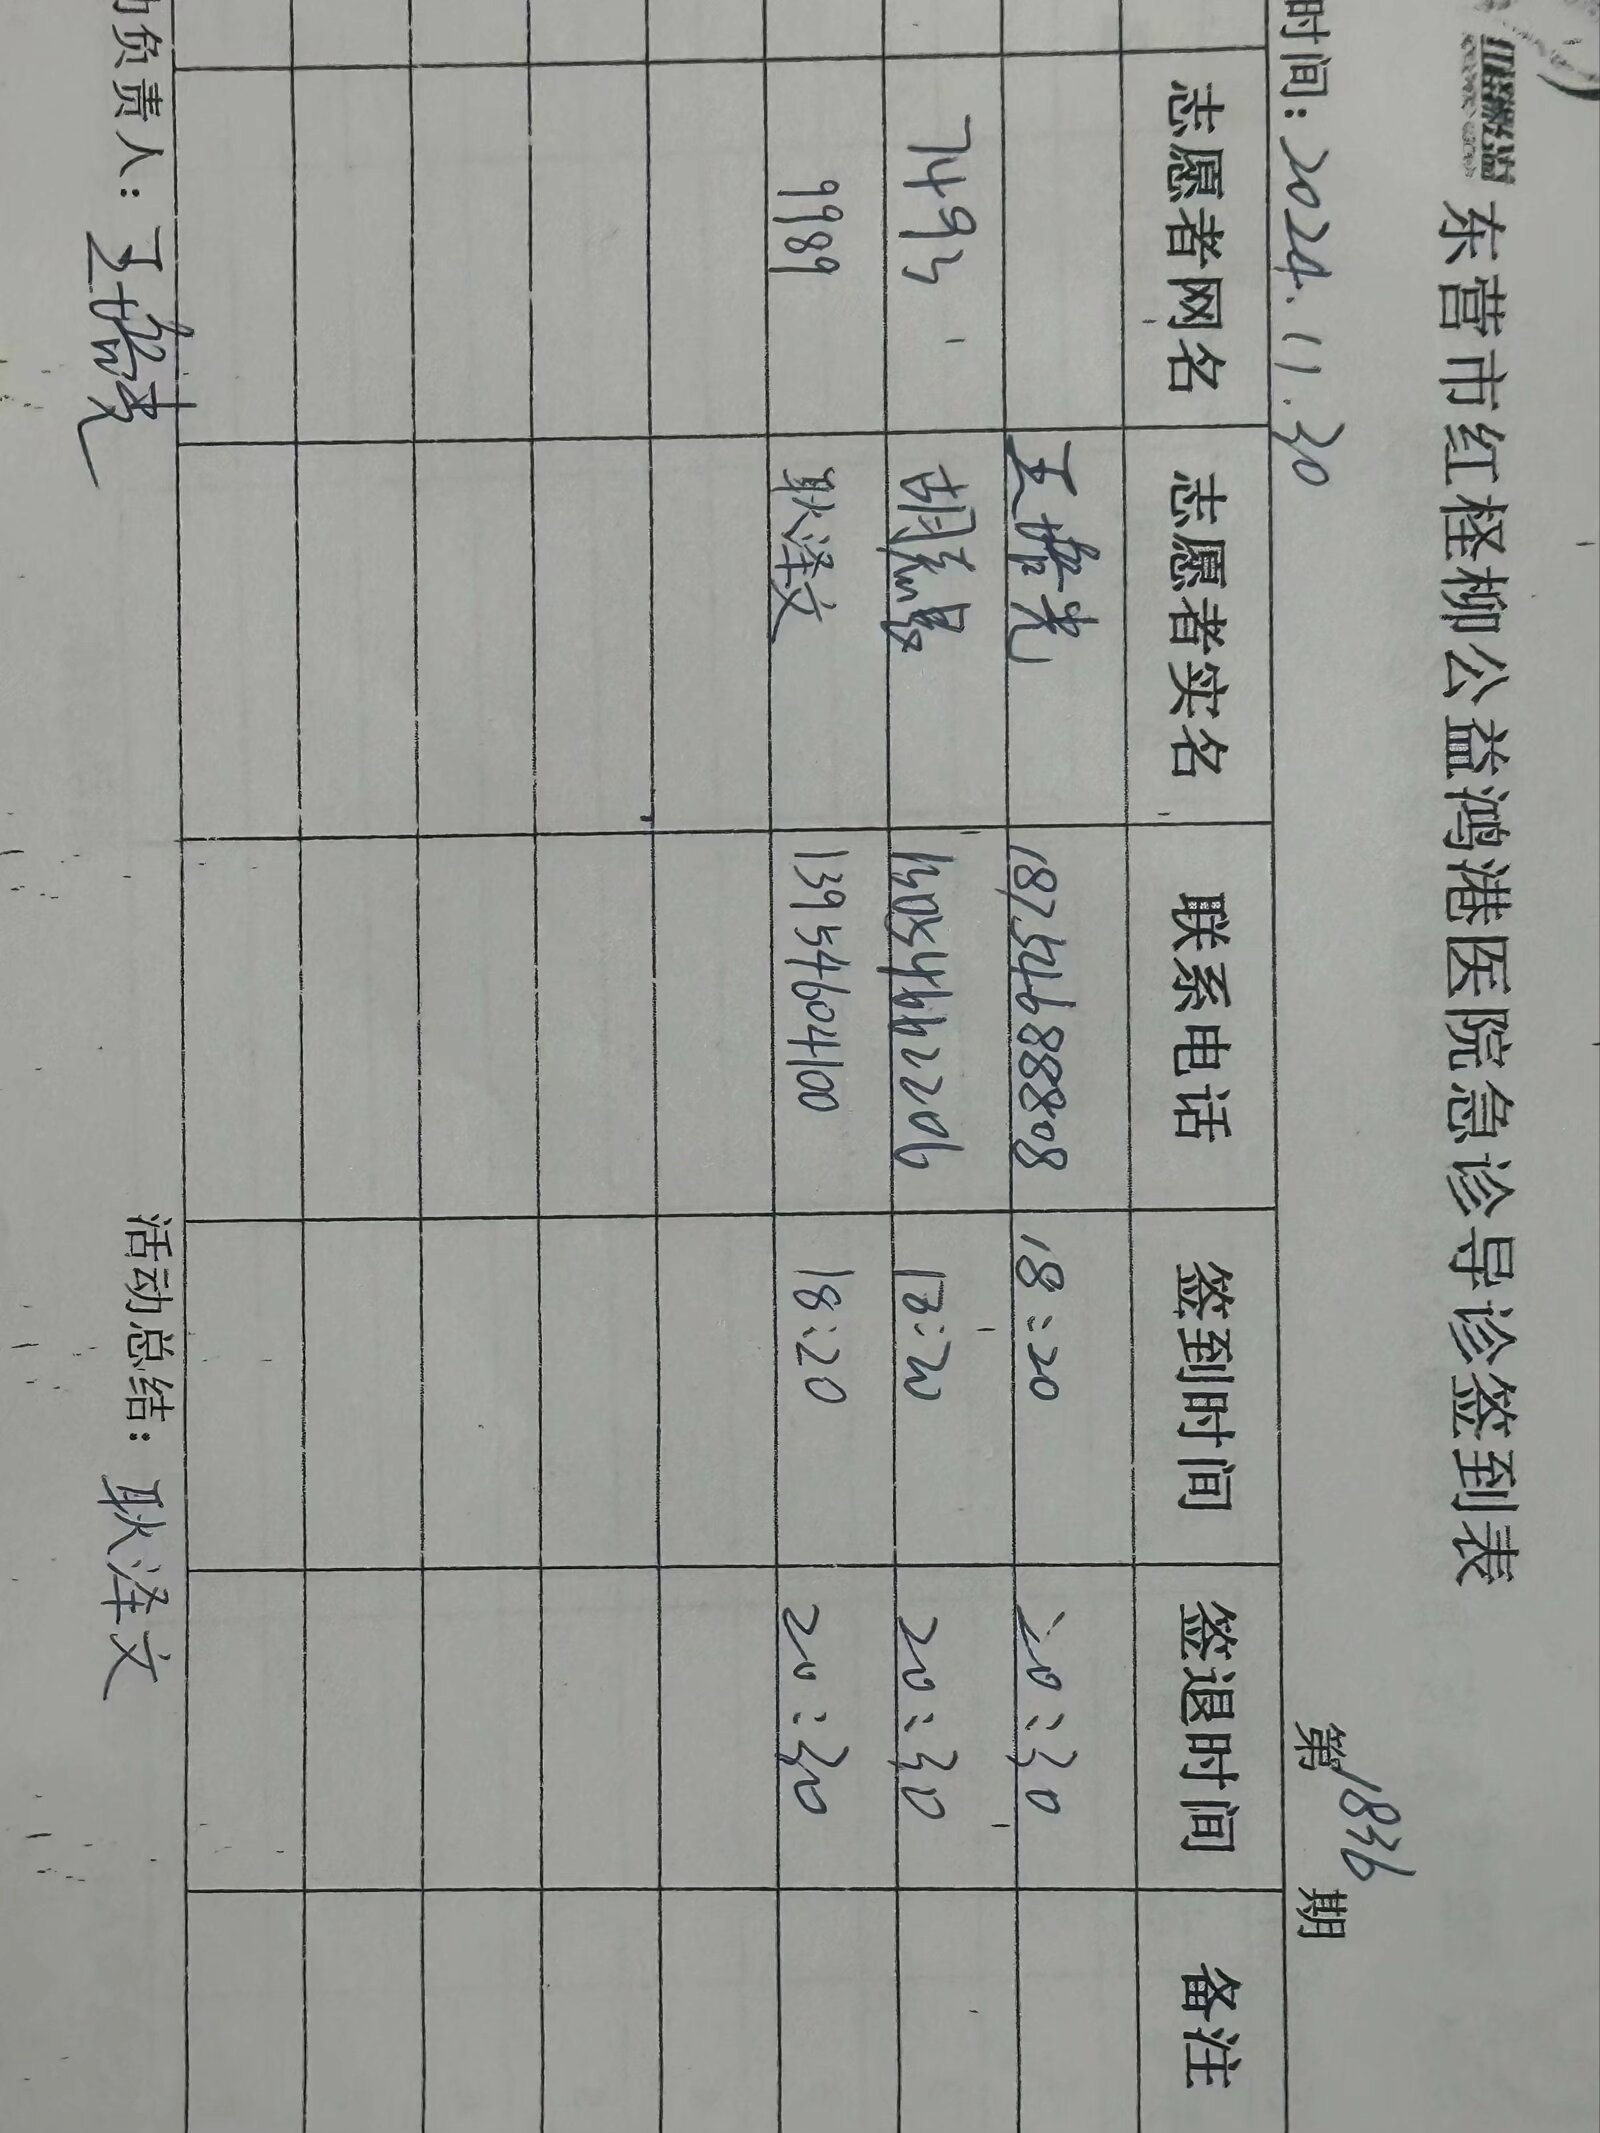 东营市红柽柳公益鸿港医院急诊导诊签到表
时间：2024.11.30 第1836期
志愿者网名 志愿者实名 联系电话 签到时间 签退时间 备注
18754688808 18:20 20:30
7493 13054662206 18:20 20:30
9989 耿泽文 13954604100 18:20 20:30
动负责人： 活动总结：耿泽文